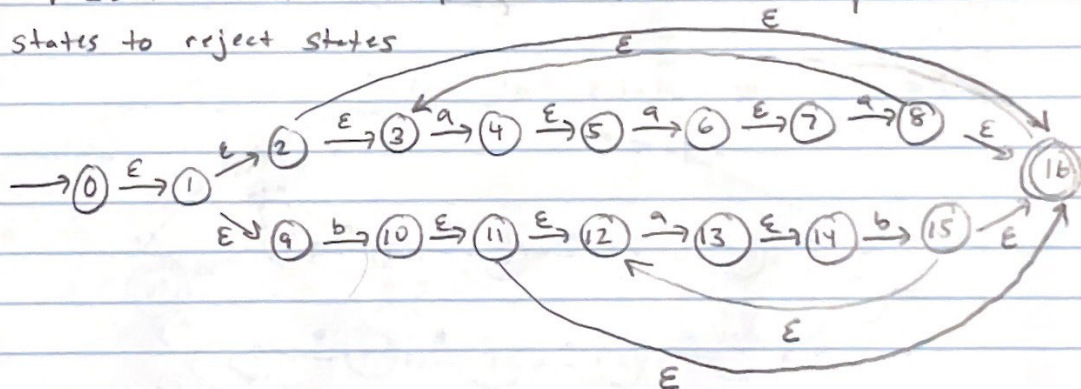 states to reject states
ε
ε
2 ε 3 a 4 ε 5 a 6 ε 7 a 8 ε
0 ε 1 ε
16
ε 9 b 10 ε 11 ε 12 a 13 ε 14 b 15 ε
ε
ε